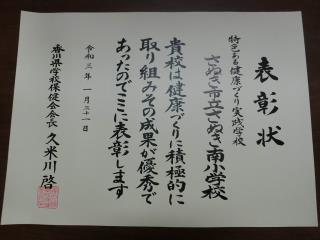 表彰状
特色ある健康づくり実践学校
さぬき市立さぬき南小学校
貴校は健康づくりに積極的に
取り組みその成果が優秀で
あったのでここに表彰します
令和三年一月三十一日
香川県学校保健会会長 久米川啓